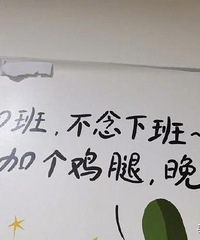 班,不念下班~
加个鸡腿,晚